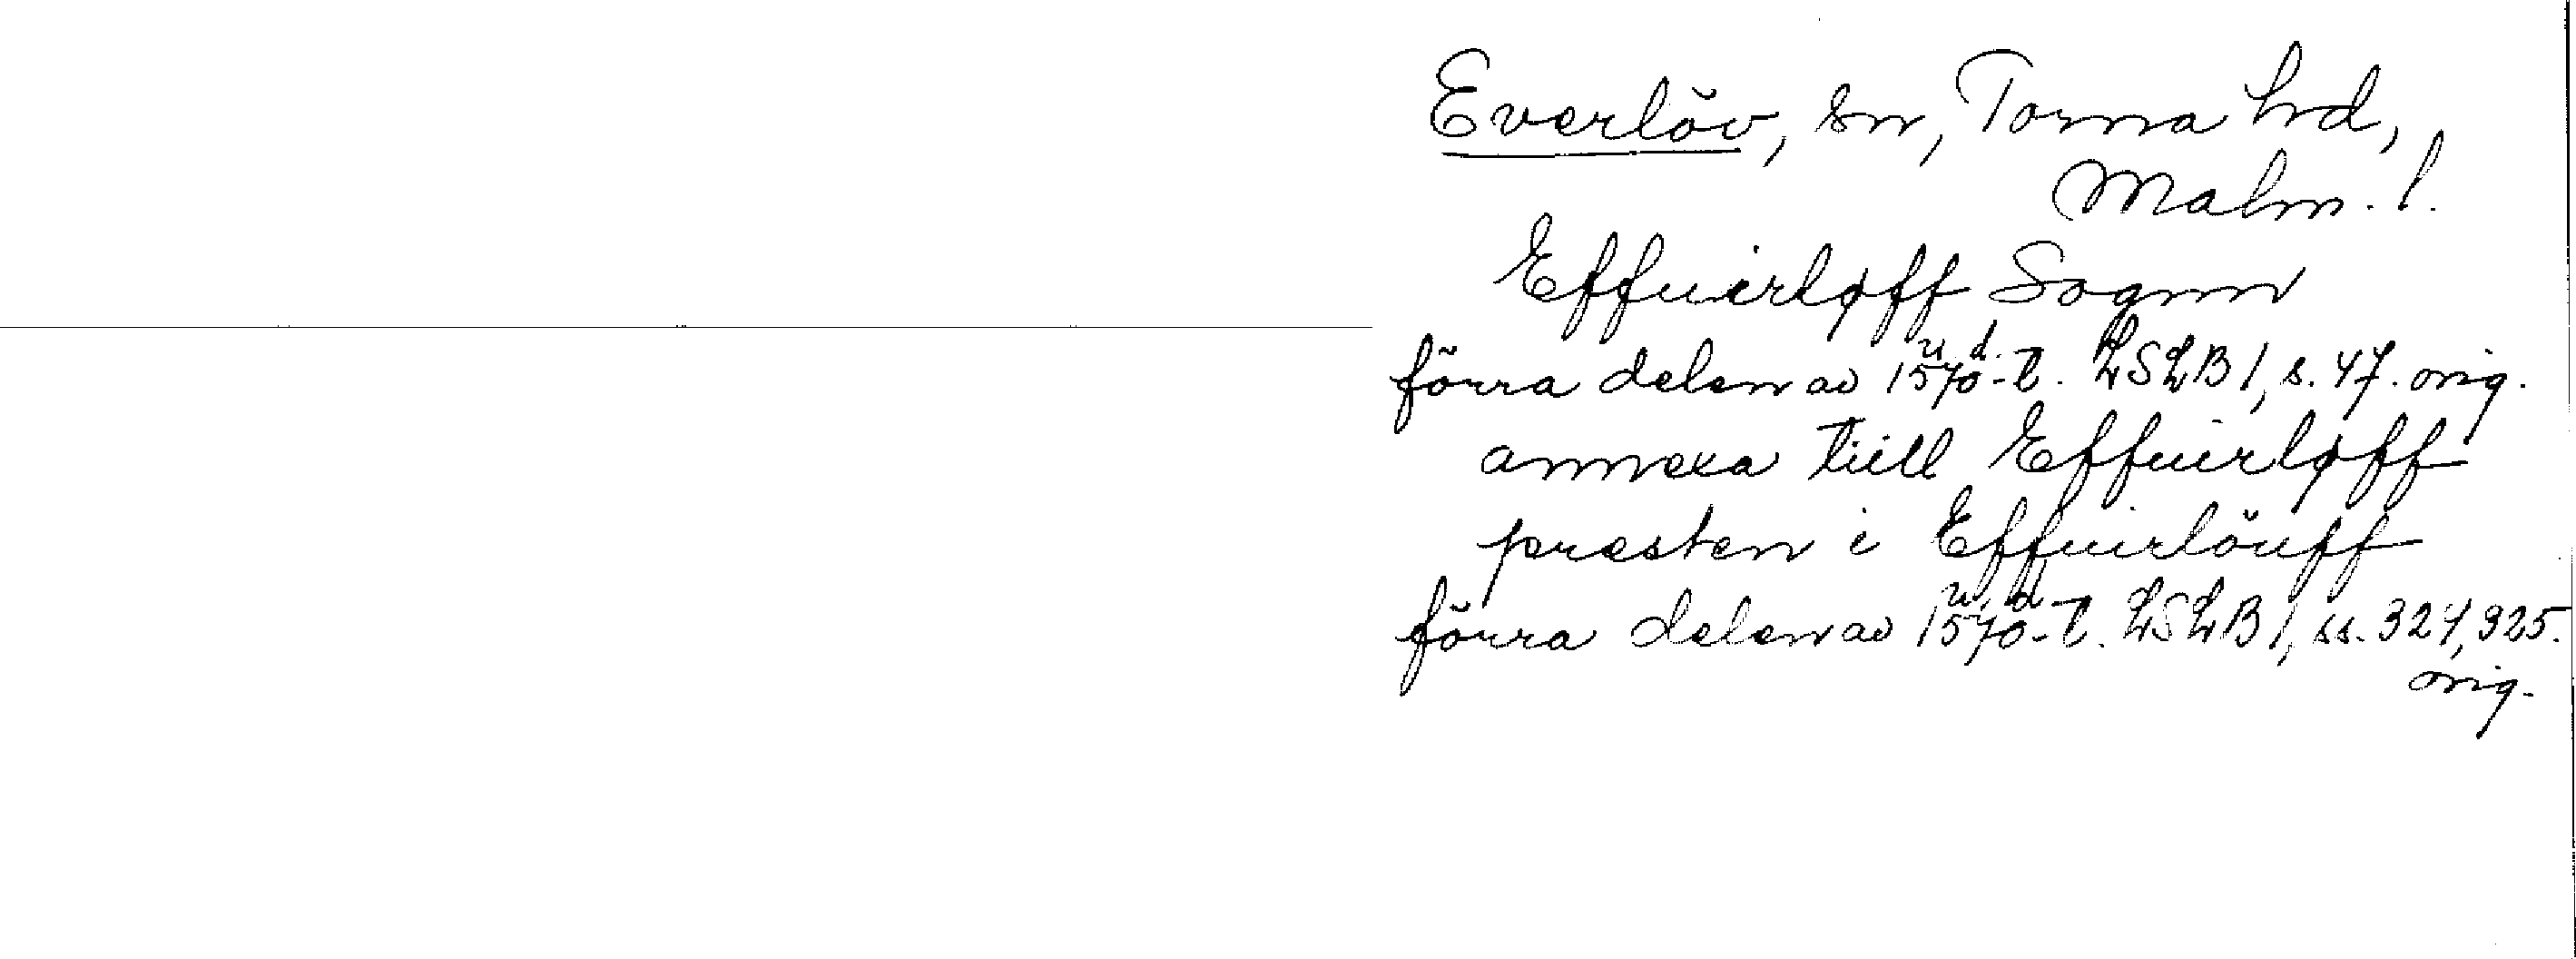 Everlöv, sn, Torna hd,
Malm. l.
Effuerløff Sognn
u. d.
förra delen av 1570-t. LSLB I, s. 47. orig.
annexa tiill Effuerløff
presten i Effuerlöuff
u. d.
förra delen av 1570-t. LSLB I, ss. 324, 325.
orig.